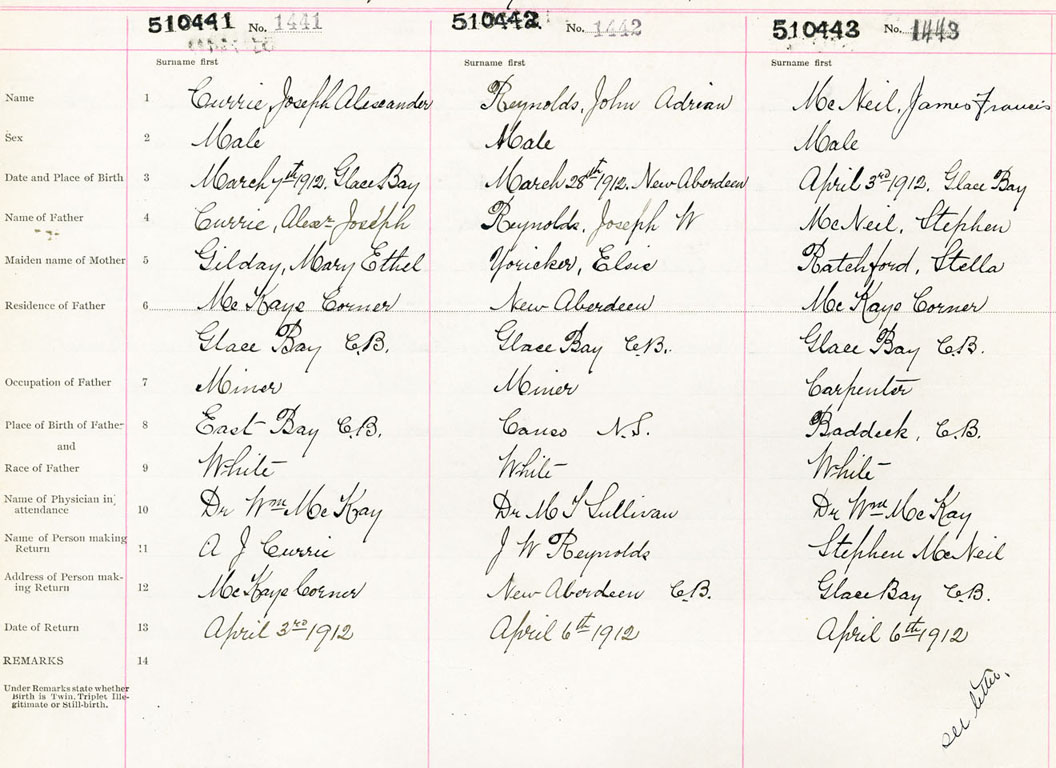 510441 No. 1441 510442 No. 1442 510443 No. 1443
Surname first Surname first Surname first
Name 1 Currie, Joseph Alexander Reynolds, John Adrian McNeil, James Francis
Sex 2 Male Male Male
Date and Place of Birth 3 March 7th 1912. Glace Bay March 28th 1912. New Aberdeen April 3rd 1912. Glace Bay
Name of Father 4 Currie, Alexr Joseph Reynolds, Joseph W McNeil, Stephen
Maiden name of Mother 5 Gilday, Mary Ethel Yoricker, Elsie Ratchford, Stella
Residence of Father 6 McKays Corner New Aberdeen McKays Corner
Glace Bay C.B. Glace Bay C.B. Glace Bay C.B.
Occupation of Father 7 Miner Miner Carpenter
Place of Birth of Father 8 East Bay C.B. Canso N.S. Baddeck, C.B.
and
Race of Father 9 White White White
Name of Physician in attendance 10 Dr Wm McKay Dr M T Sullivan Dr Wm McKay
Name of Person making Return 11 A J Currie J W Reynolds Stephen McNeil
Address of Person making Return 12 McKays Corner New Aberdeen C.B. Glace Bay C.B.
Date of Return 13 April 3rd 1912 April 6th 1912 April 6th 1912
REMARKS 14
Under Remarks state whether
Birth is Twin, Triplet, Ille-
gitimate or Still-birth.
see letter.